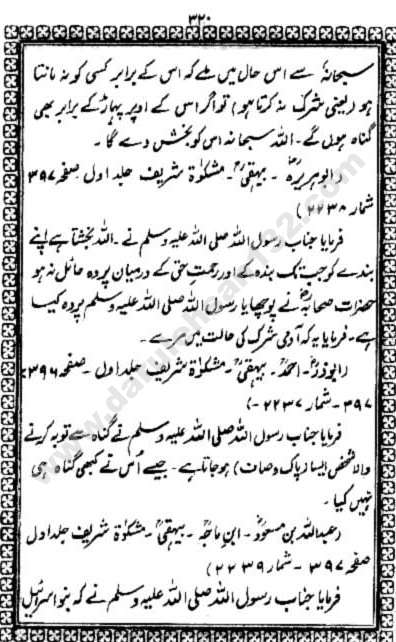 ۳۲۰
سبحانہٗ سے اس حال میں ملے کہ اس کے برابر کسی کو نہ مانتا
ہو (یعنی شرک نہ کرتا ہو) تو اگر اس کے اوپر پہاڑ کے برابر بھی
گناہ ہوں گے۔ اللہ سبحانہ اس کو بخش دے گا۔
(ابوہریرہؓ ۔ بیہقیؒ ۔ مشکوٰۃ شریف جلد اول صفحہ ۳۹۷
شمار ۲۲۳۸)
فرمایا جناب رسول اللہ صلی اللہ علیہ وسلم نے۔ اللہ بخشتا ہے اپنے
بندے کو جب تک بندہ کے اور رحمتِ حق کے درمیان پردہ حائل نہ ہو
حضرات صحابہؓ نے پوچھا یا رسول اللہ صلی اللہ علیہ وسلم پردہ کیسا
ہے۔ فرمایا یہ کہ آدمی شرک کی حالت میں مرے۔
(ابوذرؓ ۔ احمدؒ ۔ بیہقیؒ ۔ مشکوٰۃ شریف جلد اول ۔ صفحہ ۳۹۶۔
۳۹۷ ۔ شمار ۲۲۳۷ ۔)
فرمایا جناب رسول اللہ صلی اللہ علیہ وسلم نے گناہ سے توبہ کرنے
والا شخص ایسا (پاک و صاف) ہو جاتا ہے۔ جیسے اُس نے کبھی گناہ ہی
نہیں کیا۔
(عبداللہ بن مسعودؓ ۔ ابنِ ماجہؒ ۔ بیہقیؒ ۔ مشکوٰۃ شریف جلد اول
صفحہ ۳۹۷ ۔ شمار ۲۲۳۹)
فرمایا جناب رسول اللہ صلی اللہ علیہ وسلم نے کہ بنو اسرائیل